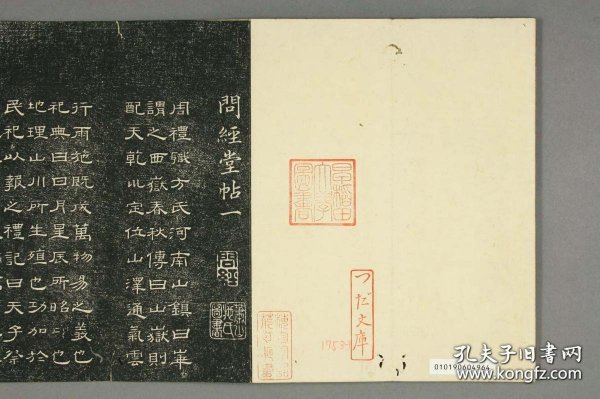 問經堂帖一
周禮職方氏河南山鎮曰華
謂之西嶽春秋傳曰山嶽則
配天乾㘴定位山澤通氣雲
行雨施既成萬物易之義也
祀典曰日月星辰所昭卬也
地理山川所生殖也功加於
民祀以報之禮記曰天子祭
早稲田大學圖書
つだ文庫
17534
010190604964
孔夫子旧书网
www.kongfz.com